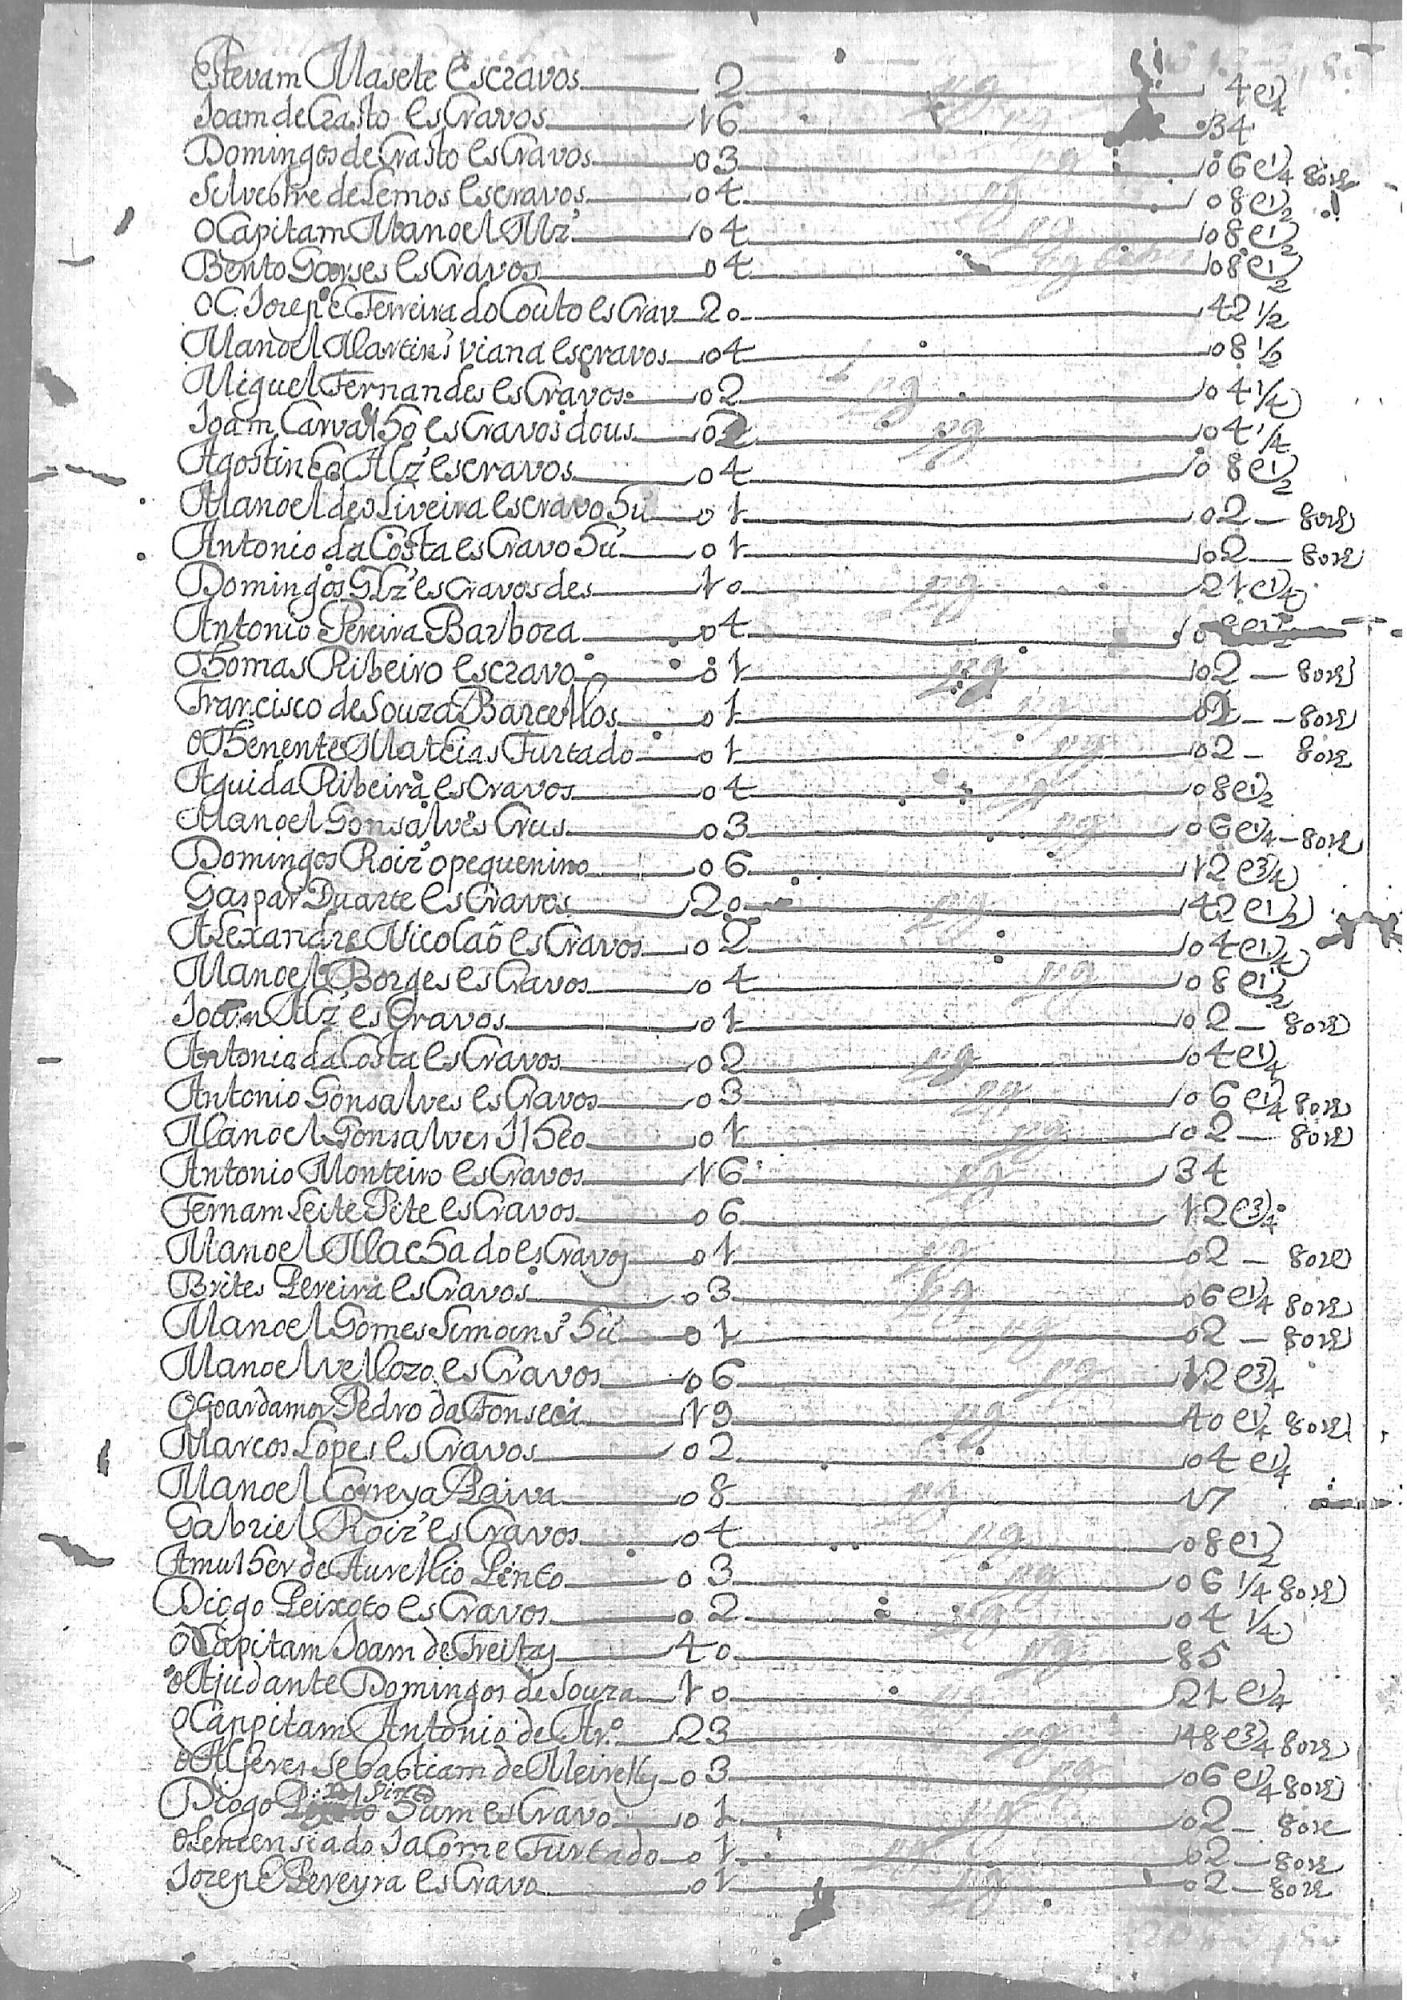 Estevam Masele escravos 2 pg 4 e 1/4
Joam de Crasto escravos 16 pg 34
Domingos de Crasto escravos 03 pg 06 e 1/4 8ove
Selvestre de Lemos escravos 04 pg 08 e 1/2
O Capitam Manoel Alz' 04 pg 08 e 1/2
Bento Gorses escravos 04 pg 08 e 1/2
O C. Jozeph Ferreira do Couto escrav 20 42 1/2
Manoel Martins' viana escravos 04 08 1/2
Miguel Fernandes escravos 02 pg 04 1/4
Joam Carvalho escravos dous 02 pg 04 1/4
Agostinho Alz' escravos 04 08 e 1/2
Manoel de oliveira escravo hu' 01 02 8ove
Antonio da Costa escravo hu' 01 02 8ove
Domingos Glz' escravos des 10 pg 21 e 1/4
Antonio Pereira Barboza 04 08 e 1/2
Thomas Ribeiro escravo 01 pg 02 8ove
Francisco de Souza Barcellos 01 pg 02 8ove
O Thenente Mathias Furtado 01 pg 02 8ove
Aguida Ribeira escravos 04 pg 08 e 1/2
Manoel Gonsalves Crus 03 pg 06 e 1/4 8ove
Domingos Roiz' o pequenino 06 12 e 3/4
Gaspar Duarte escravos 20 pg 42 e 1/2
Alexandre Nicolaô escravos 02 04 e 1/4
Manoel Borges escravos 04 pg 08 e 1/2
Joam Alz' escravos 01 02 8ove
Antonio da Costa escravos 02 pg 04 e 1/4
Antonio Gonsalves escravos 03 pg 06 e 1/4 8ove
Manoel Gonsalves Ilheo 01 pg 02 8ove
Antonio Monteiro escravos 16 pg 34
Fernam Leite Pite escravos 06 12 e 3/4
Manoel Machado escravos 01 pg 02 8ove
Brites Pereira escravos 03 pg 06 e 1/4 8ove
Manoel Gomes Simoens' hu' 01 pg 02 8ove
Manoel vellozo escravos 06 pg 12 e 3/4
O Goardamor Pedro da Fonseca 19 pg 40 e 1/4 8ove
Marcos Lopes escravos 02 04 e 1/4
Manoel Correya Paiva 08 pg 17
Gabriel Roiz' escravos 04 pg 08 e 1/2
A mulher de Aurellio Pinto 03 pg 06 1/4 8ove
Diogo Peixoto escravos 02 pg 04 1/4
O Capitam Joam de Freitas 40 pg 85
O Ajudante Domingos de Souza 10 pg 21 e 1/4
O Cappitam Antonio de Ar.º 23 pg 48 e 3/4 8ove
O Alferes Sebastiam de Meirellys 03 pg 06 e 1/4 8ove
Diogo Pinto hum escravo 01 pg 02 8ove
O Lencensiado Jacome Furtado 01 pg 02 8ove
Jozeph Pereyra escravo 01 pg 02 8ove